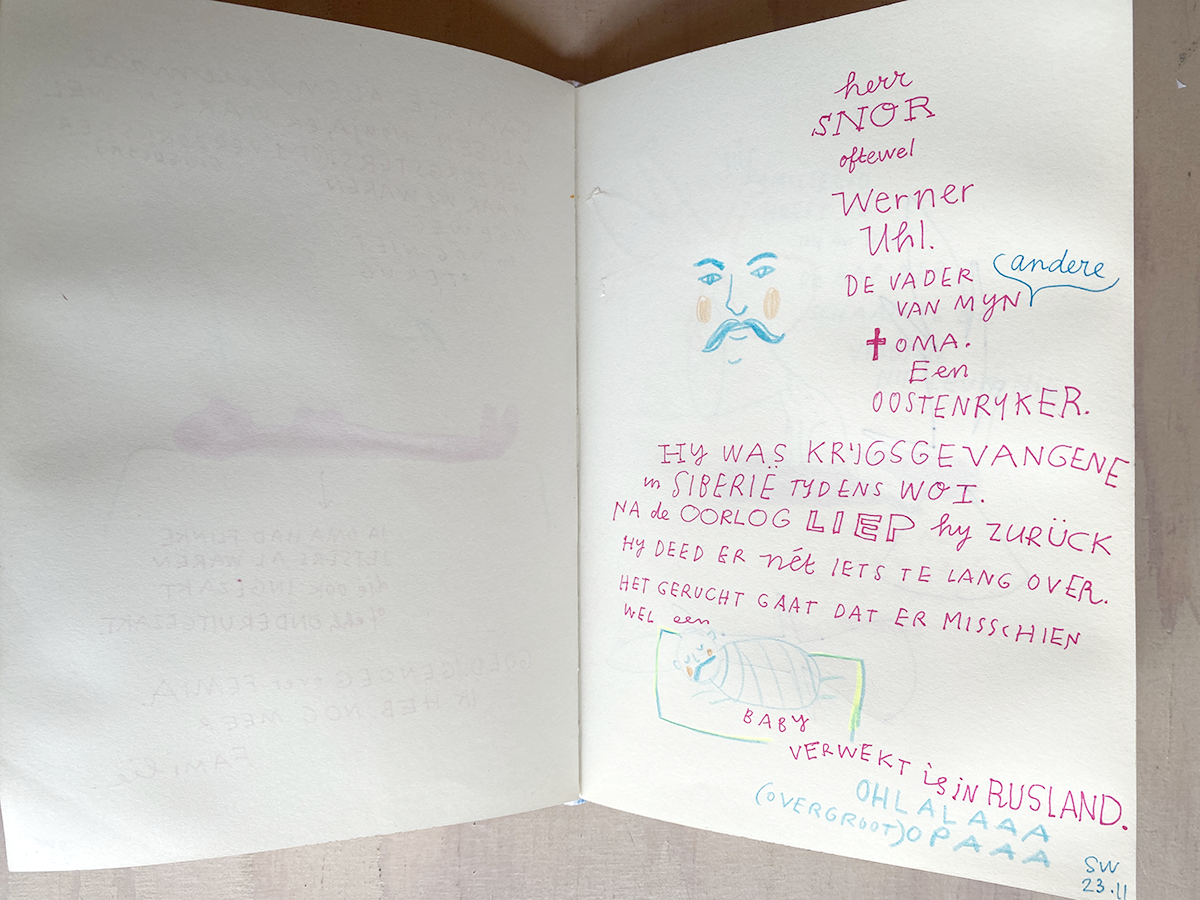 herr
SNOR
oftewel
Werner
Uhl.
DE VADER
VAN MYN andere
OMA.
Een
OOSTENRYKER.
HY WAS KRIJGSGEVANGENE
in SIBERIË TYDENS WO I.
NA de OORLOG LIEP hy ZURÜCK
HY DEED ER nét IETS TE LANG OVER.
HET GERUCHT GAAT DAT ER MISSCHIEN
WEL een
BABY
VERWEKT is in RUSLAND.
OHLALAAA
(OVERGROOT)OPAAA
SW
23.11